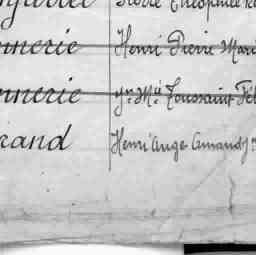 Pierre Théophile
nnerie Henri Pierre Mari
nnerie Jn Mie Toussaint Fél
rand Henri Ange Amand Jn